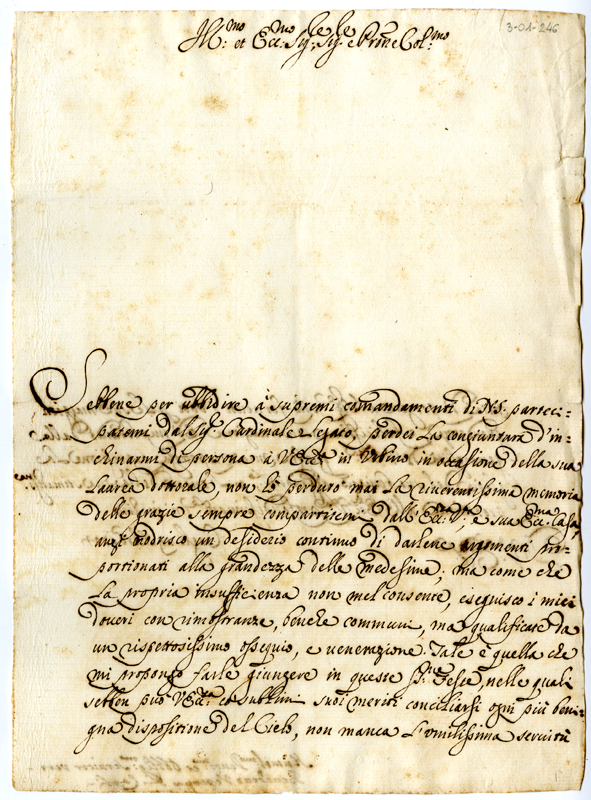 3-01-246
Ill:mo et Ecc:mo Sig:re Sig:re e Pron e Col:mo
Sebbene per ubbidire à supremi comandamenti di N.S. parteci-
patemi dal Sig: Cardinale Legato, perdei la congiuntura d'in-
chinarmi di persona à V. Ecc:a in Urbino in occasione della sua
Laurea dottorale, non hò perduto mai la riverentissima memoria
delle grazie sempre compartitemi dall'Ecc:a V:ra e sua Ecc:ma Casa,
anzi nodrisco un desiderio continuo di darlene argomenti pro-
portionati alla grandezza delle medesime; ma come che
la propria insufficienza non mel consente, eseguisco i miei
doveri con rimostranze, benche communi, ma qualificate da
un rispettosissimo ossequio, e venerazione. Tale è quella che
mi propongo farle giungere in queste S:te Feste, nelle quali
sebben può V. Ecc:za co sublimi suoi meriti conciliarsi ogni più beni-
gna dispositione del Cielo, non manca l'umilissima servitù